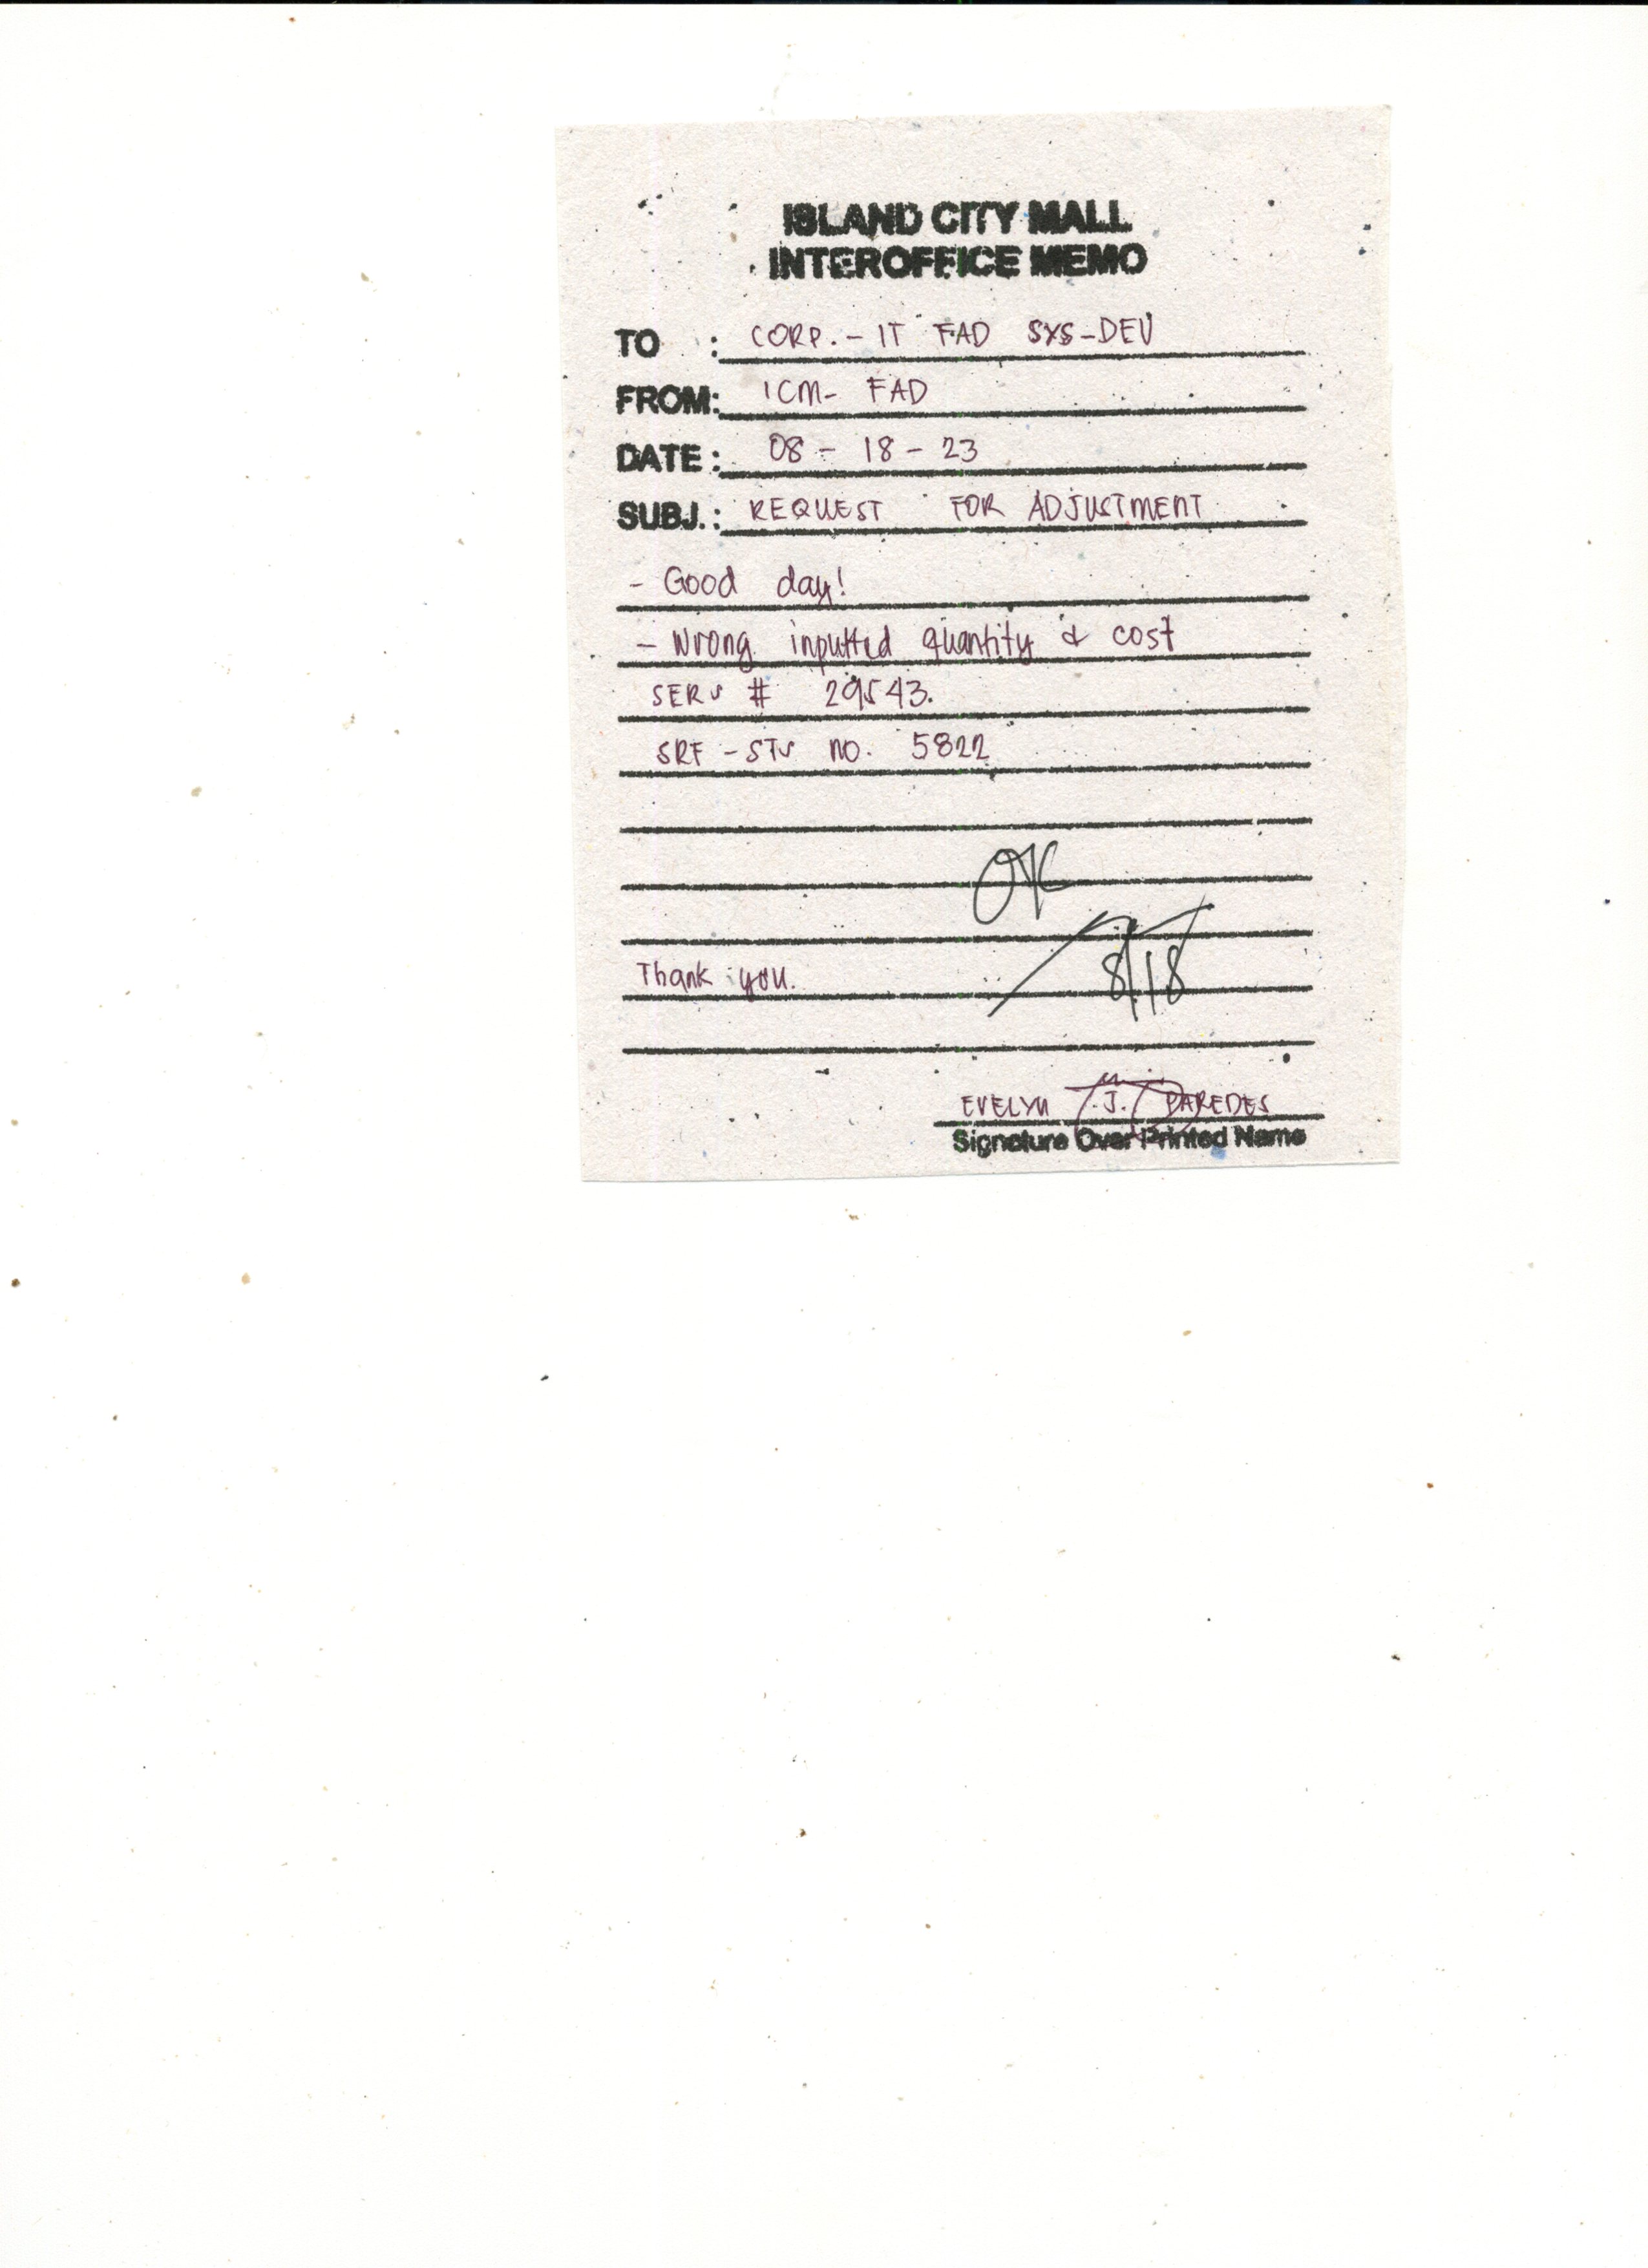 ISLAND CITY MALL
INTEROFFICE MEMO
TO : CORP.- IT FAD SYS-DEV
FROM: ICM- FAD
DATE : 08 - 18 - 23
SUBJ.: REQUEST FOR ADJUSTMENT
- Good day!
- Wrong inputted quantity & cost
SERV # 29543.
SRF - STV no. 5822
OK
8/18
Thank you.
EVELYN J. PAREDES
Signature Over Printed Name